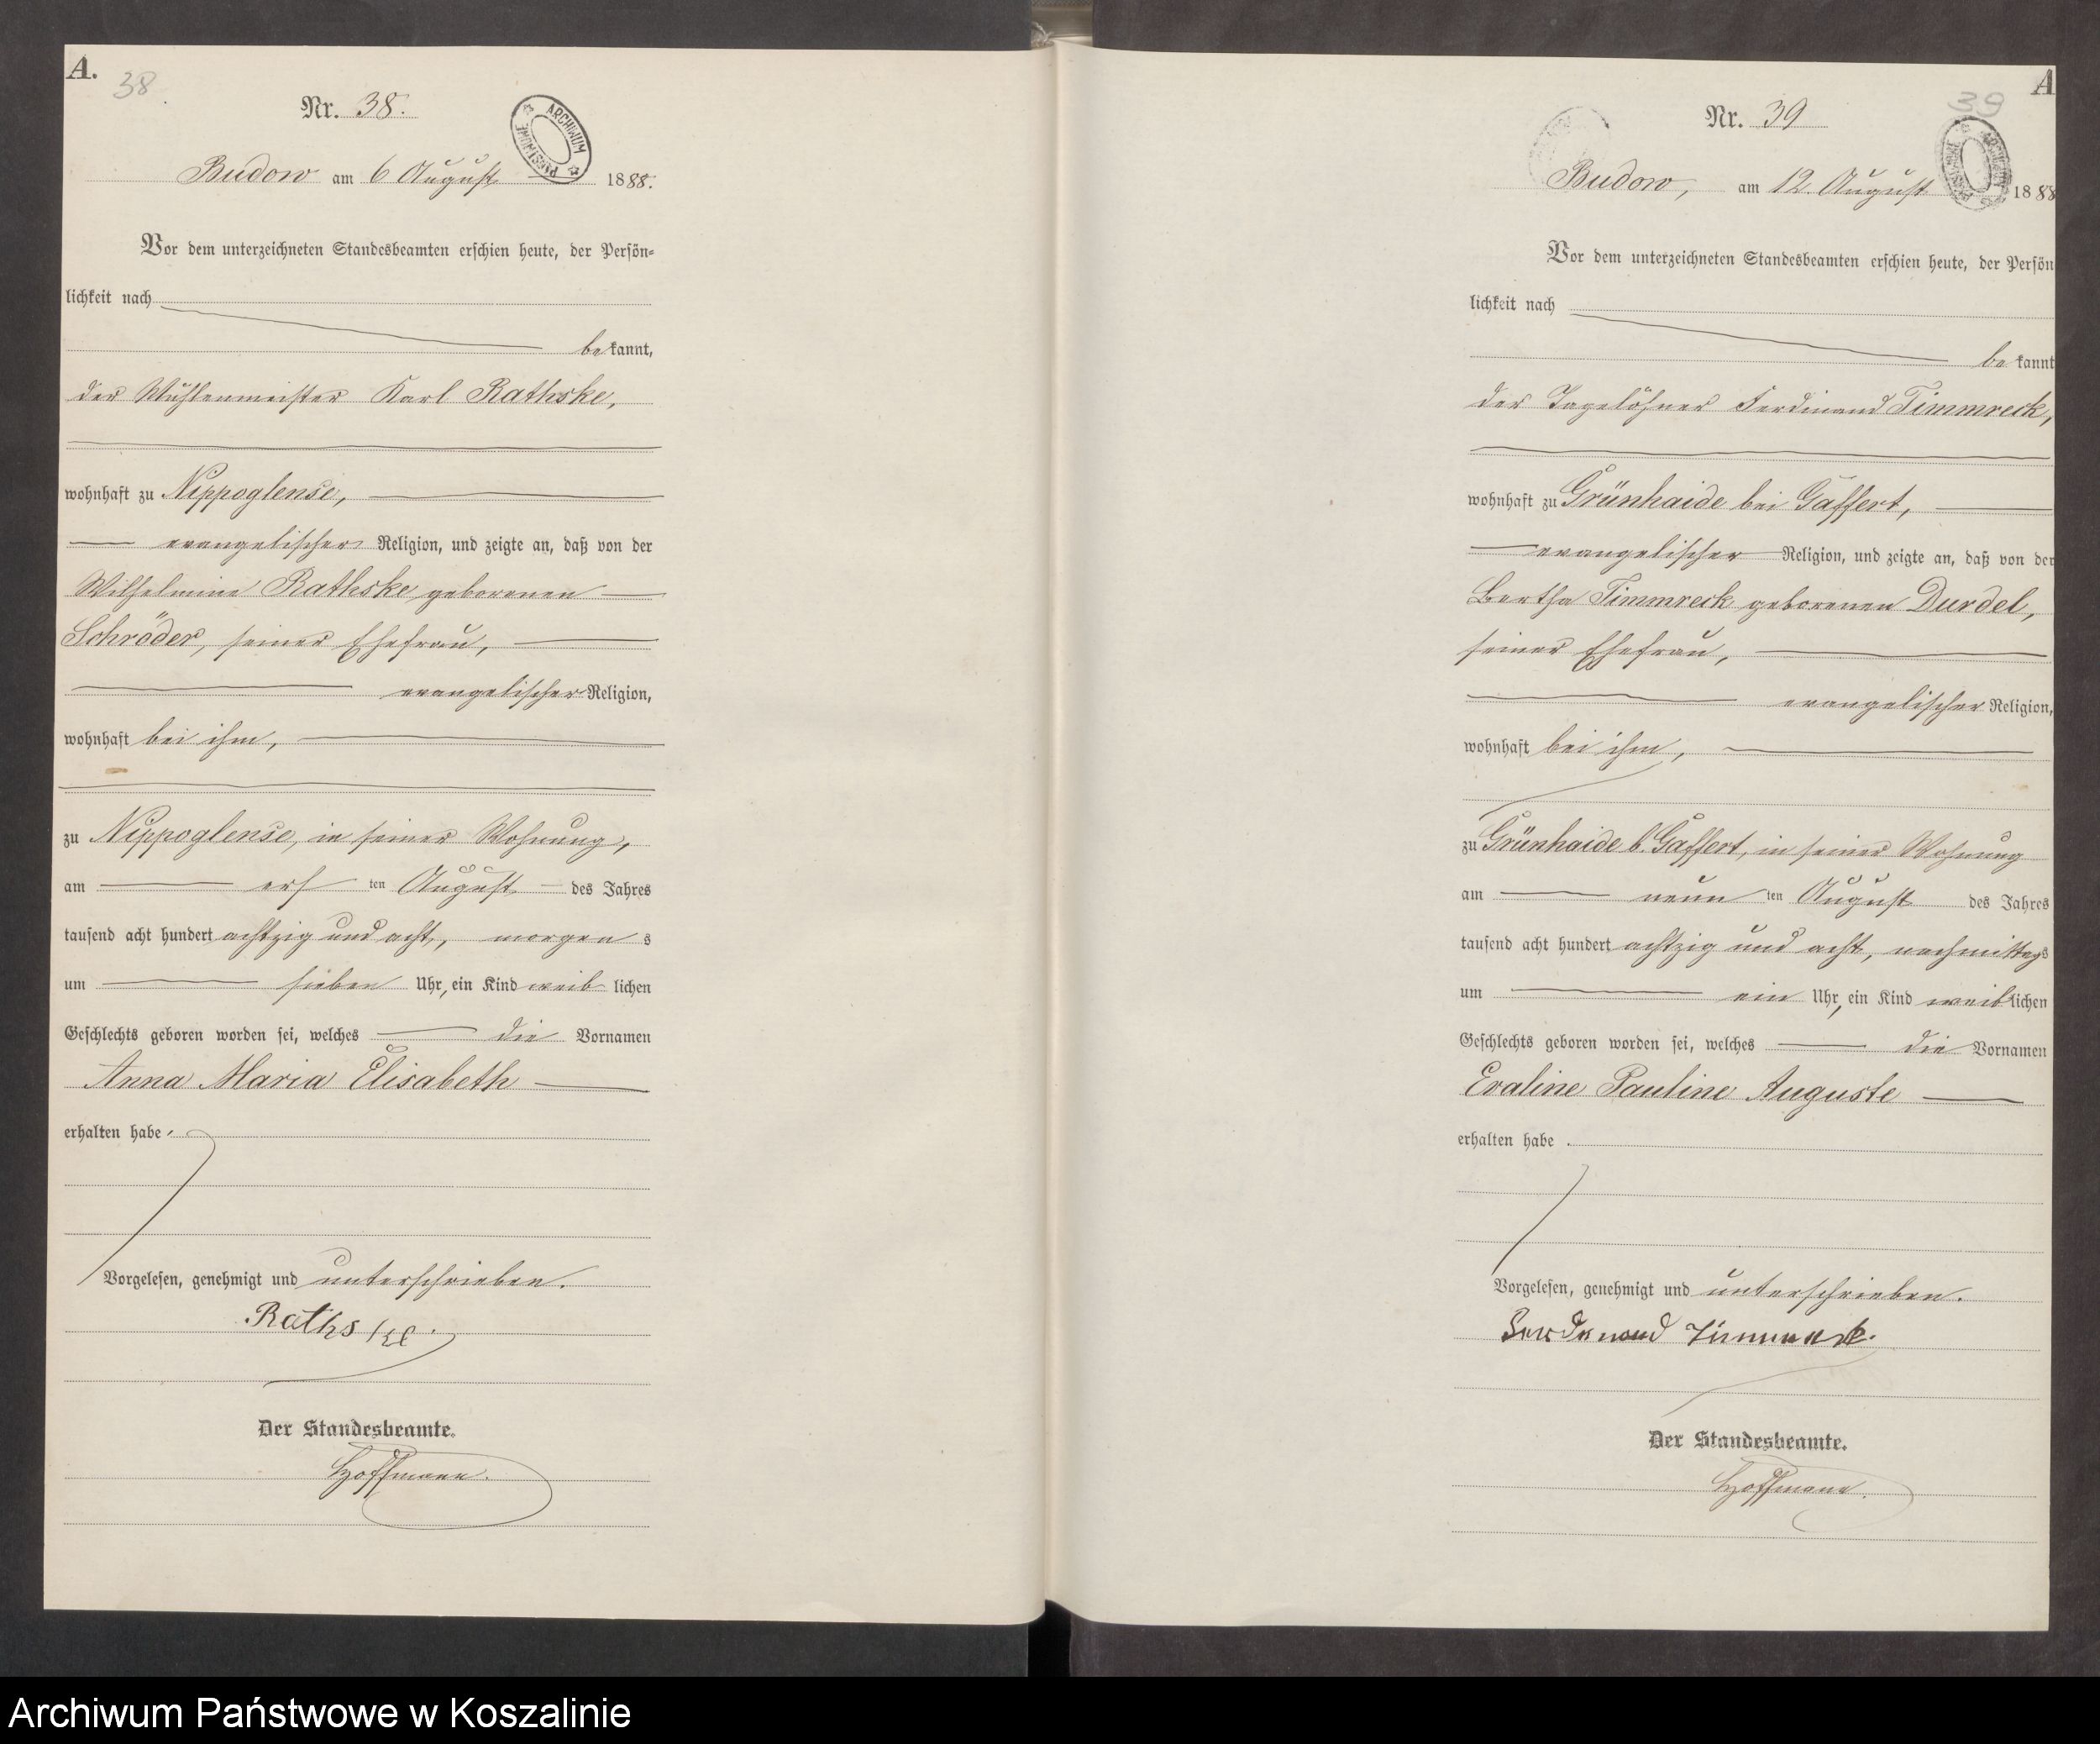 A.
38
Nr. 38.
ARCHIWUM PAŃSTWOWE
Budow am 6 August 1888.
Vor dem unterzeichneten Standesbeamten erschien heute, der Persön-
lichkeit nach
bekannt,
der Mühlenmeister Karl Rathske,
wohnhaft zu Nippoglense,
evangelischer Religion, und zeigte an, daß von der
Wilhelmine Rathske geborenen
Schröder, seiner Ehefrau,
evangelischer Religion,
wohnhaft bei ihm,
zu Nippoglense, in seiner Wohnung,
am ersten August des Jahres
tausend acht hundert achtzig und acht, morgens
um sieben Uhr, ein Kind weiblichen
Geschlechts geboren worden sei, welches die Vornamen
Anna Maria Elisabeth
erhalten habe.
Vorgelesen, genehmigt und unterschrieben.
Rathske.
Der Standesbeamte.
Hoffmann.
A
39
Nr. 39
Budow, am 12. August 1888
Vor dem unterzeichneten Standesbeamten erschien heute, der Persön
lichkeit nach
bekannt
der Tagelöhner Ferdinand Timmreck,
wohnhaft zu Grünhaide bei Gaffert,
evangelischer Religion, und zeigte an, daß von der
Bertha Timmreck geborenen Durdel,
seiner Ehefrau,
evangelischer Religion,
wohnhaft bei ihm,
zu Grünhaide b. Gaffert, in seiner Wohnung
am neunten August des Jahres
tausend acht hundert achtzig und acht, nachmittags
um ein Uhr, ein Kind weiblichen
Geschlechts geboren worden sei, welches die Vornamen
Evaline Pauline Auguste
erhalten habe.
Vorgelesen, genehmigt und unterschrieben.
Ferdinand Timmreck.
Der Standesbeamte.
Hoffmann.
Archiwum Państwowe w Koszalinie